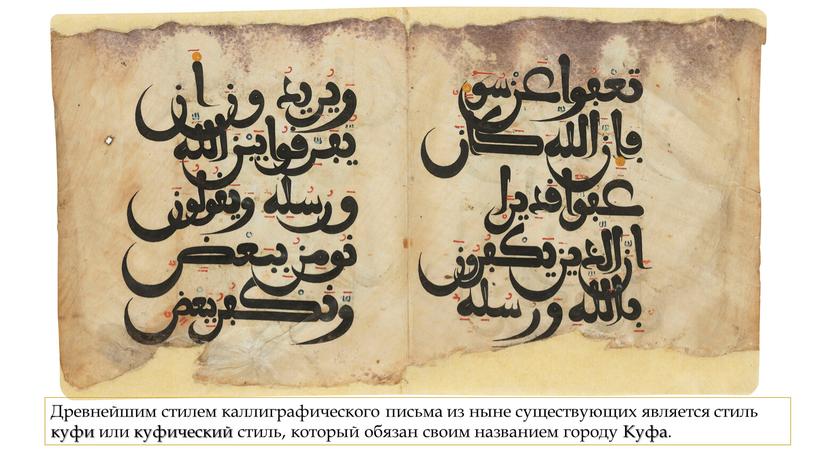 تعفوا عن سو
فان الله كان
عفوا قديرا
ان الذين يكفرون
بالله ورسله
ويريدون ان
يفرقوا بين الله
ورسله ويقولون
نومن ببعض
ونكفر ببعض
Древнейшим стилем каллиграфического письма из ныне существующих является стиль
куфи или куфический стиль, который обязан своим названием городу Куфа.